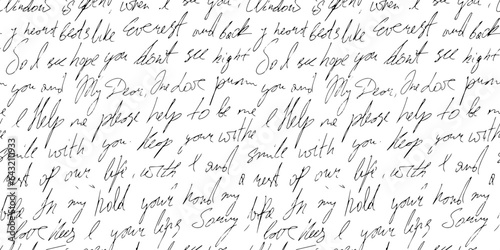 Window is open, when I see you, Window is open, when I see you
y heart beats like Everest and back y heart beats like Everest and back
So I see hope you don't see right So I see hope you don't see right
you and My Dear, The Love you and My Dear, The Love
e Help me please help to be me e Help me please help to be me
smile with you. Keep your with smile with you. Keep your with
rest of our life, with I and a rest of our life, with I and
In my hold your hand my In my hold your hand my
love I your lips Sorry, love I your lips Sorry,
Adobe Stock | #643210933